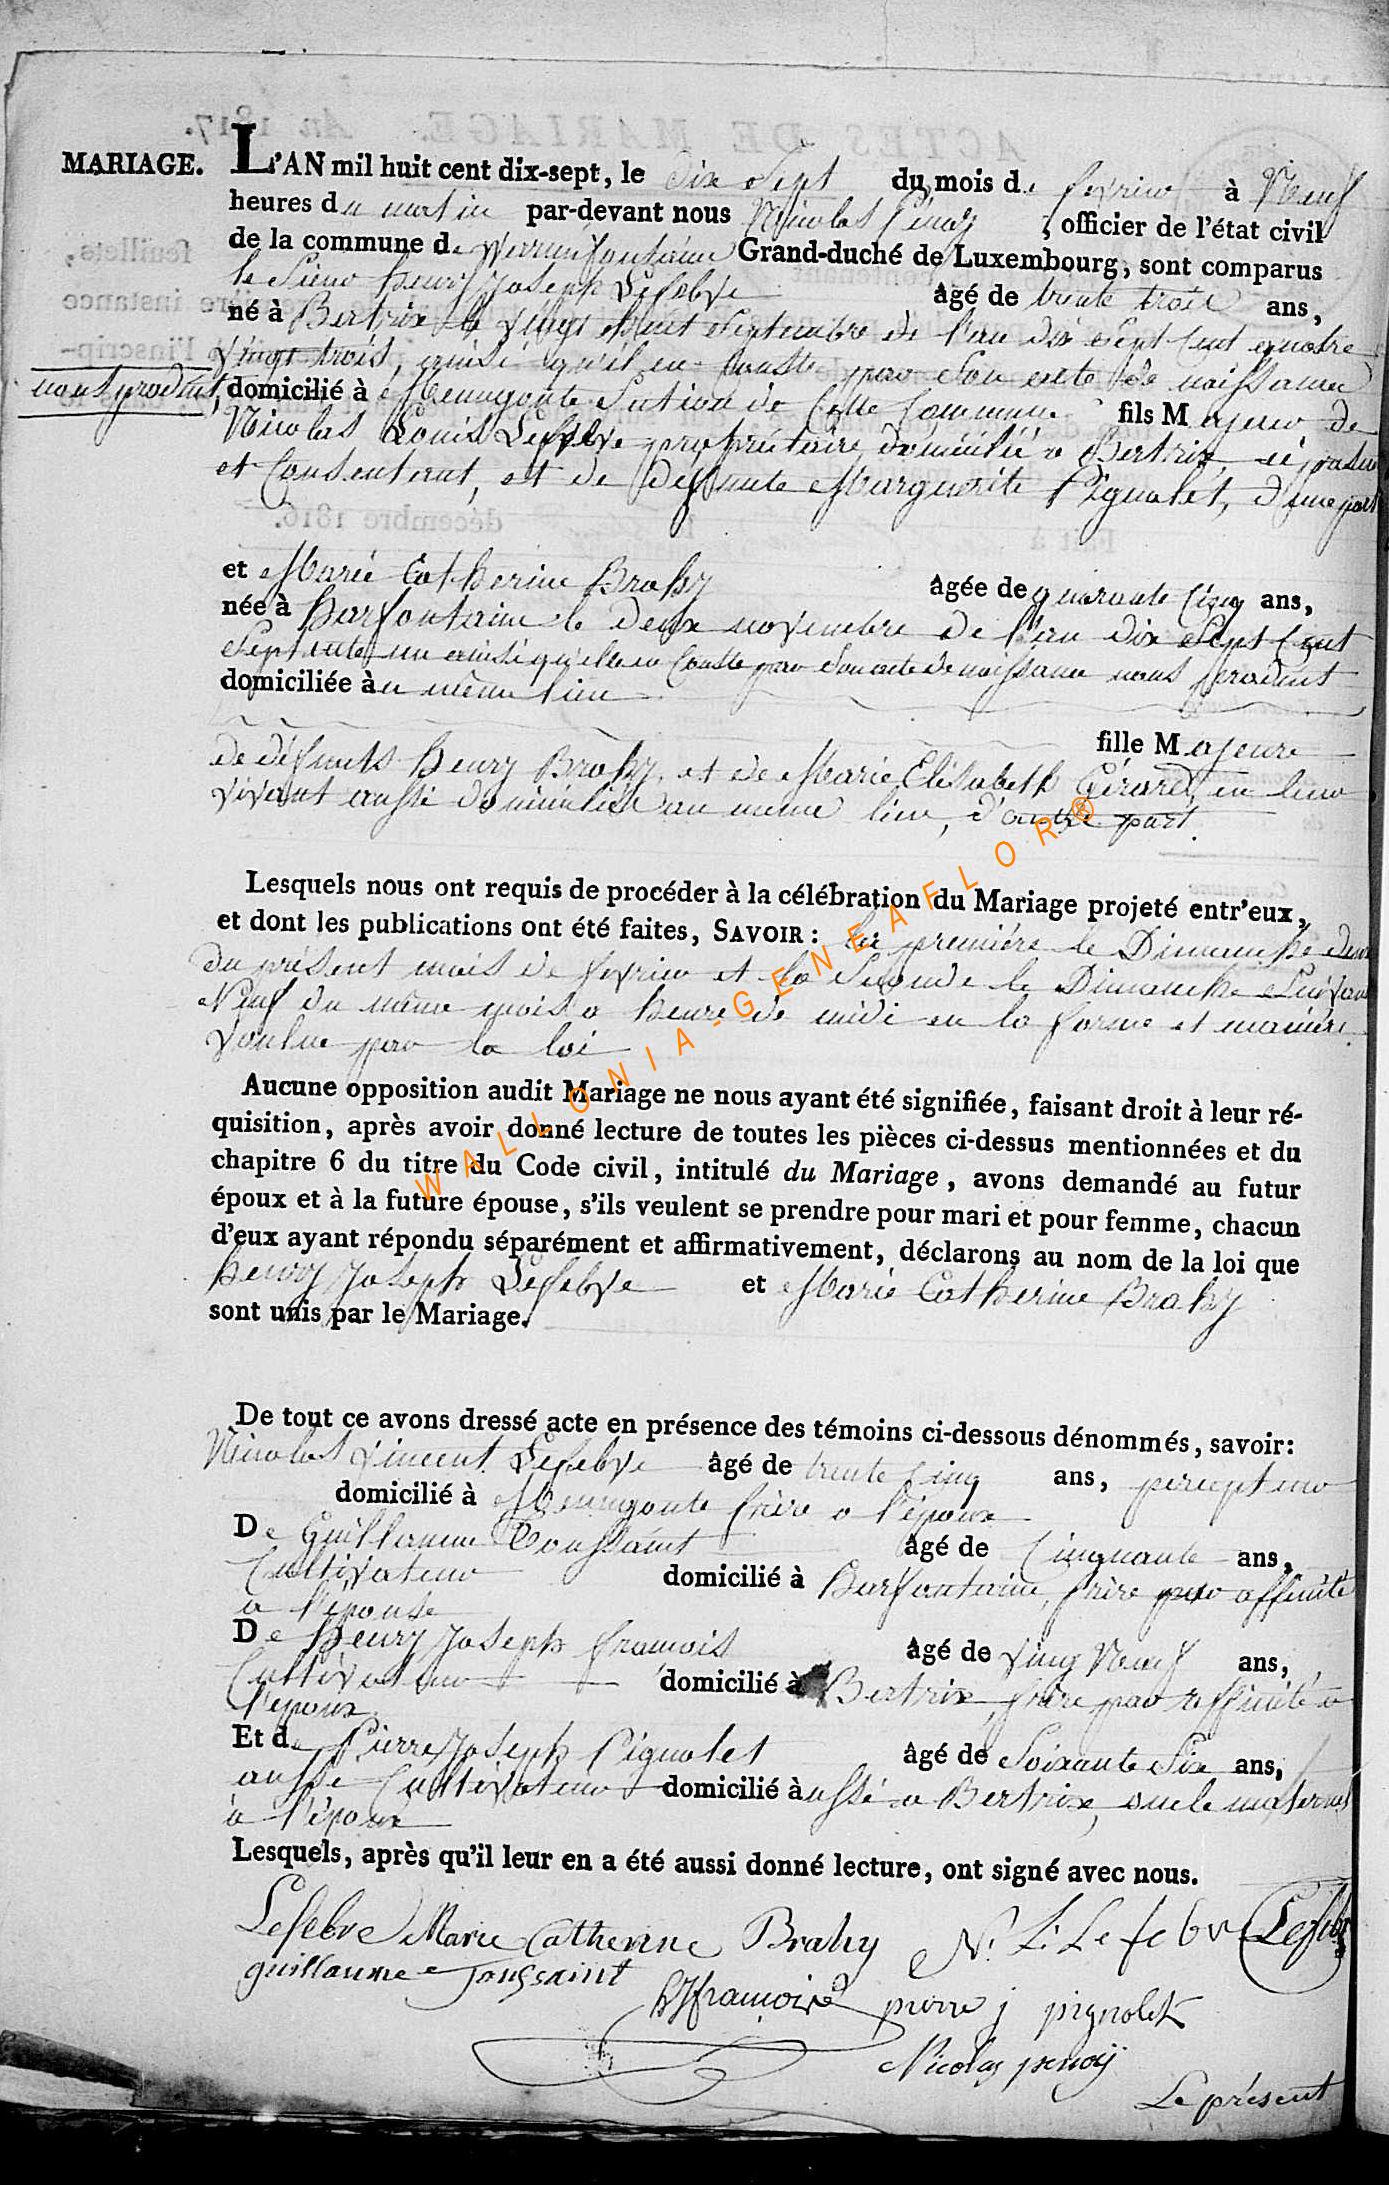 MARIAGE. L'AN mil huit cent dix-sept, le dix Sept du mois de fevrier à Neuf
heures du matin par-devant nous Nicolas Penoy, officier de l'état civil
de la commune de Grand-duché de Luxembourg, sont comparus
le Sieur henry joseph Lefebve âgé de trente trois ans,
né à Bertrix le vingt huit Septembre de l'an dix Sept Cent quatre
vingt trois, ainsi qu'il en Conste par Son acte de naissance
nous produit, domicilié à Menugoute Section de Cette Commune fils Majeur de
Nicolas Louis Lefebve propriétaire domicilié a Bertrix, ci présent
et Consentant, et de défunte Marguerite Pignolet, d'une part
et Marie Catherine Brahy âgée de quarante Cinq ans,
née à Harfontaine le deux novembre de l'an dix Sept Cent
Septante un ainsi qu'elle en Conste par Son acte de naissance nous produit
domiciliée au même lieu
fille Majeure
de défunts henry Brahy et de Marie Elisabeth Gérard en leur
vivant aussi domiciliés au meme lieu, d'autre part.
Lesquels nous ont requis de procéder à la célébration du Mariage projeté entr'eux,
et dont les publications ont été faites, SAVOIR: la première le Dimanche deux
du présent mois de fevrier et la Seconde le Dimanche Suivant
Neuf du même mois a heure de midi en la forme et manière
voulue par la loi
Aucune opposition audit Mariage ne nous ayant été signifiée, faisant droit à leur ré-
quisition, après avoir donné lecture de toutes les pièces ci-dessus mentionnées et du
chapitre 6 du titre du Code civil, intitulé du Mariage, avons demandé au futur
époux et à la future épouse, s'ils veulent se prendre pour mari et pour femme, chacun
d'eux ayant répondu séparément et affirmativement, déclarons au nom de la loi que
henry joseph Lefebve et Marie Catherine Brahy
sont unis par le Mariage.
De tout ce avons dressé acte en présence des témoins ci-dessous dénommés, savoir:
Nicolas Vincent Lefebve âgé de trente Cinq ans, percepteur
domicilié à Menugoute frère a l'époux
De Guillaume Toussaint âgé de Cinquante ans,
Cultivateur domicilié à Harfontaine, frère par affinité
a l'épouse
De henry joseph francois âgé de vingt Neuf ans,
Cultivateur domicilié à Bertrix, frère par affinité a
l'époux
Et de Pierre joseph Pignolet âgé de Soixante Six ans,
aussi Cultivateur domicilié aussi a Bertrix, oncle maternel
à l'époux
Lesquels, après qu'il leur en a été aussi donné lecture, ont signé avec nous.
Lefebve Marie Catherine Brahy N. L. Lefebve Lefebve
guillaume Toussaint
hJfrancois pierre j pignolet
Nicolas penoÿ
Le présent
WALLONIA-GENEAFLOR®